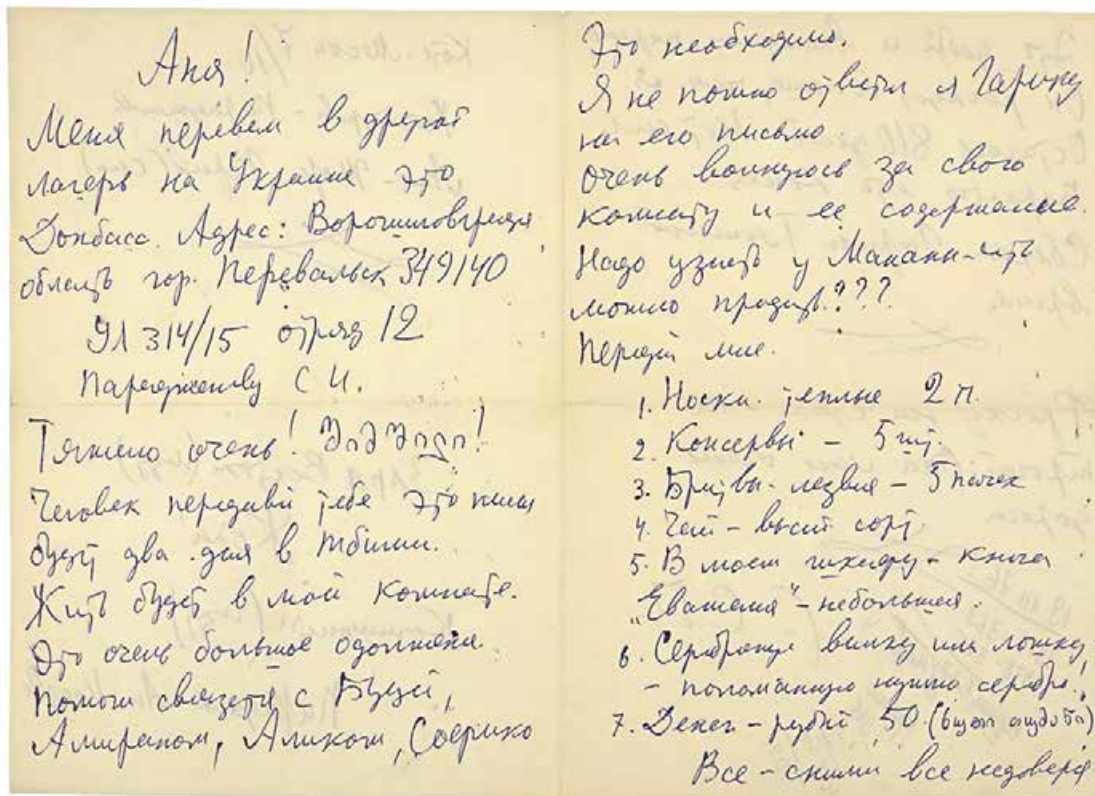 Аня!
Меня перевели в другой
лагерь на Украине это
Донбасс. Адрес: Ворошиловградская
область гор. Перевальск 349140
УЛ 314/15 отряд 12
Параджанову С И.
Тяжело очень! შიმშილი!
Человек передавий тебе это письмо
будет два дня в Тбилиси.
Жить будет в моей комнате.
Это очень большое одолжение.
Помоги связаться с
Амираном, Аликом, Софико
Это необходимо.
Я не помню ответил я Гарику
на его письмо
Очень волнуюсь за свою
комнату и ее содержание.
Надо узнать у Манани-что
можно продать???
Передай мне.
1. Носки теплые 2 п.
2. Консервы - 5 шт.
3. Бритвы-лезвия - 5 пачек
4. Чай - высш сорт.
5. В моем шкафу - книга
- небольшая.
6. Серебряную вилку или ложку
- поломанную нужно серебро!
7. Денег - рублей 50.
Все - сними все недоверие